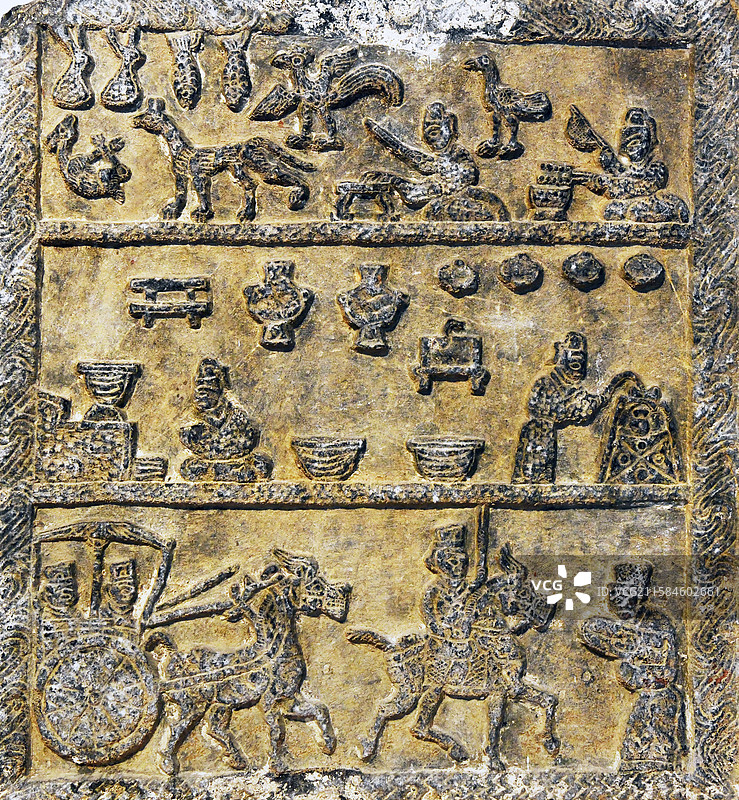 VCG
ID:VCG211584602661